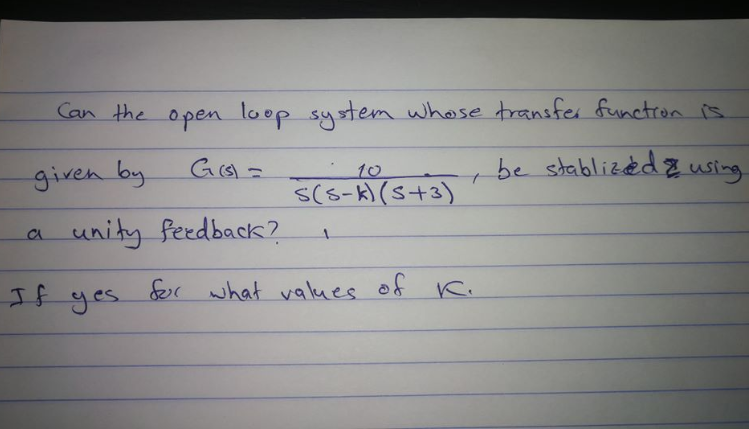 Can the open loop system whose transfer function is
given by G(s) = 10 / S(S-k)(S+3) , be stablized using
a unity feedback?
If yes for what values of K.